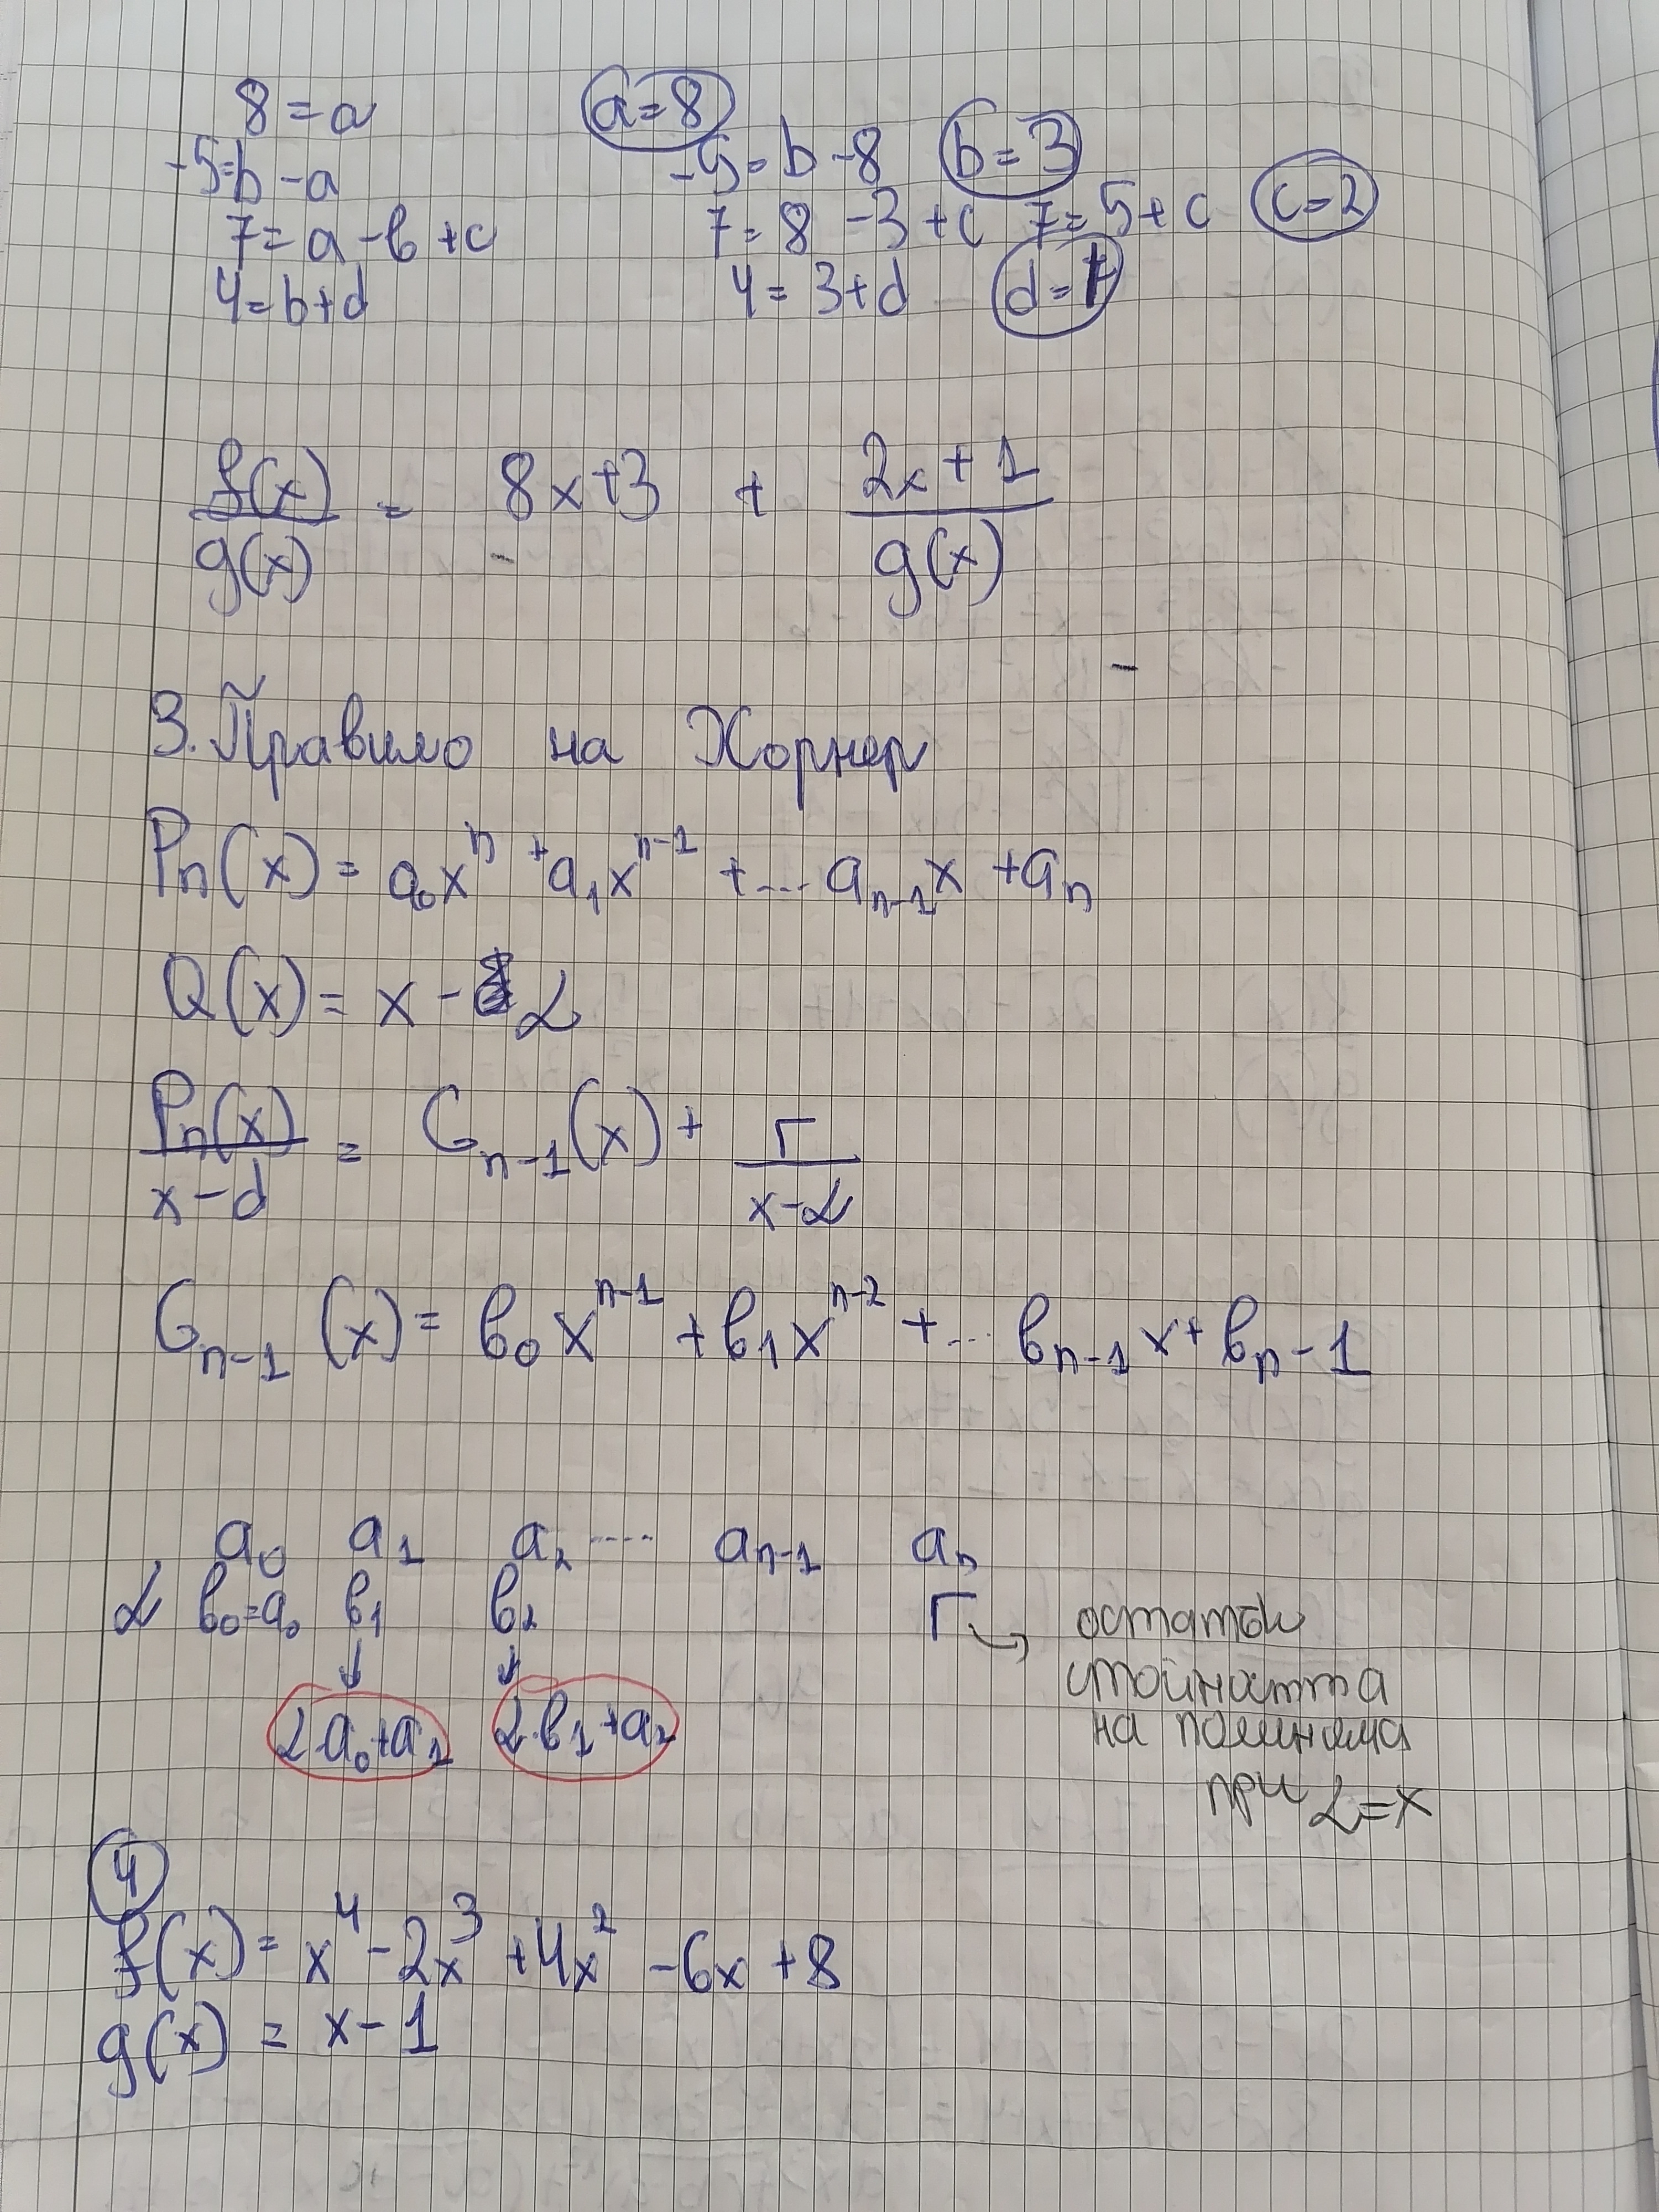 8 = a a = 8
-5 = b - a -5 = b - 8 b = 3
7 = a - b + c 7 = 8 - 3 + c 7 = 5 + c c = 2
4 = b + d 4 = 3 + d d = 1
f(x)/g(x) = 8x + 3 + (2x + 1)/g(x)
3. Правило на Хорнер
Pn(x) = a₀xⁿ + a₁xⁿ⁻¹ + ... aₙ₋₁x + aₙ
Q(x) = x - α
Pn(x)/(x - d) = Gₙ₋₁(x) + r/(x - α)
Gₙ₋₁(x) = b₀xⁿ⁻¹ + b₁xⁿ⁻² + ... bₙ₋₁x + bₙ - 1
a₀ a₁ a₂ .... aₙ₋₁ aₙ
α b₀ = a₀ b₁ b₂ r → остатък
↓ ↓ стойността
α.a₀ + a₁ α.b₁ + a₂ на полинома
при α = x
4
f(x) = x⁴ - 2x³ + 4x² - 6x + 8
g(x) = x - 1